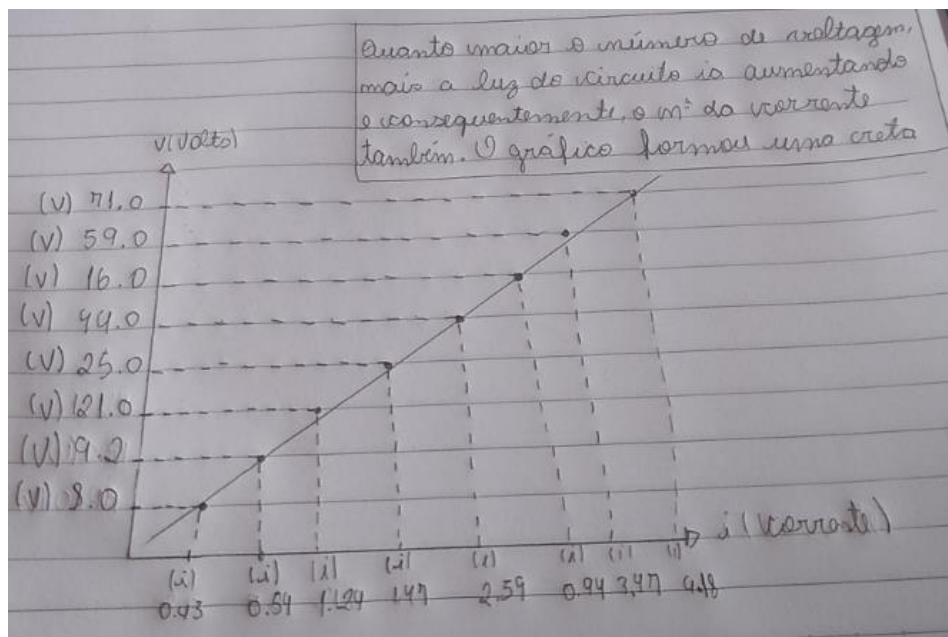 Quanto maior o número de voltagem,
mais a luz do circuito ia aumentando
e consequentemente, o nº da corrente
também. O gráfico formou uma creta
V(Volts)
(V) 71.0
(V) 59.0
(V) 16.0
(V) 44.0
(V) 25.0
(V) 121.0
(V) 19.2
(V) 8.0
i (corrente)
(i) (i) (i) (i) (i) (i) (i) (i)
0.43 0.54 1.124 1.47 2.59 0.94 3,47 4.18